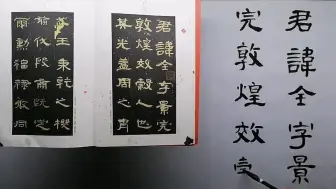 君諱全字景
完敦煌效
君諱全字景完
敦煌效穀人也
其先蓋周之胄
武王秉乾之機
翦伐殷商既定
爾勳福祿攸同